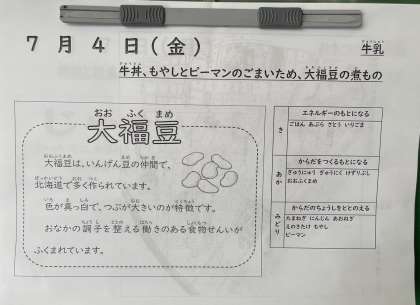 7月4日(金)
牛乳
牛丼、もやしとピーマンのごまいため、大福豆の煮もの
大福豆
大福豆は、いんげん豆の仲間で、
北海道で多く作られています。
色が真っ白で、つぶが大きいのが特徴です。
おなかの調子を整える働きのある食物せんいが
ふくまれています。
エネルギーのもとになる
き
ごはん あぶら さとう いりごま
からだをつくるもとになる
あか
ぎゅうにゅう ぎゅうにく けずりぶし
おおふくまめ
からだのちょうしをととのえる
みどり
たまねぎ にんじん あおねぎ
えのきたけ もやし
ピーマン